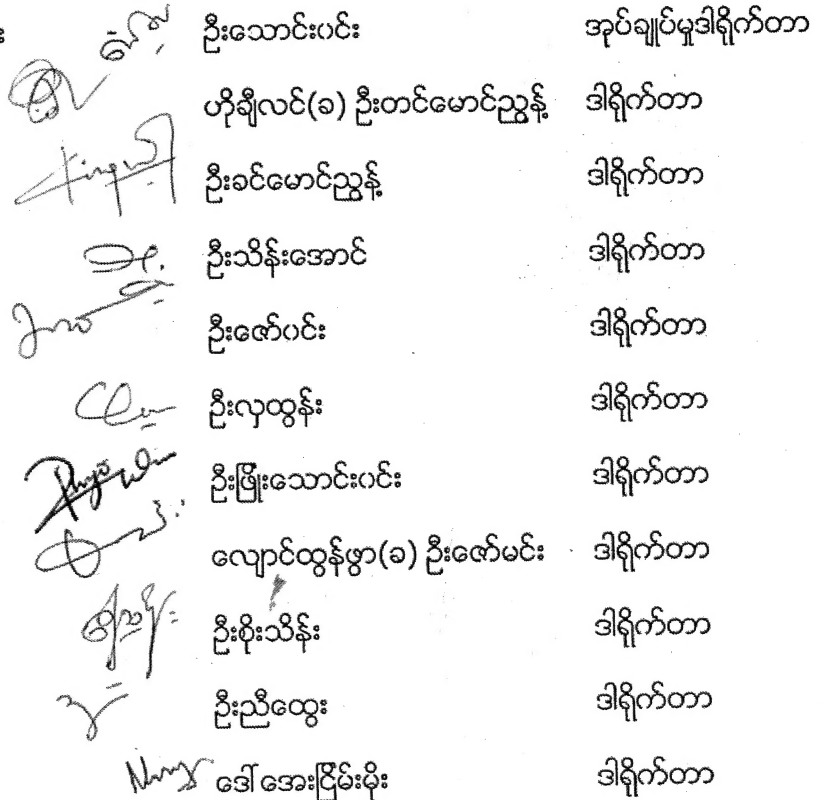 ဦးသောင်းဝင်း အုပ်ချုပ်မှုဒါရိုက်တာ
ဟိုချီလင်(ခ) ဦးတင်မောင်ညွန့် ဒါရိုက်တာ
ဦးခင်မောင်ညွန့် ဒါရိုက်တာ
ဦးသိန်းအောင် ဒါရိုက်တာ
ဦးဇော်ဝင်း ဒါရိုက်တာ
ဦးလှထွန်း ဒါရိုက်တာ
ဦးဖြိုးသောင်းဝင်း ဒါရိုက်တာ
လျောင်ထွန်ဖွာ(ခ) ဦးဇော်မင်း ဒါရိုက်တာ
ဦးစိုးသိန်း ဒါရိုက်တာ
ဦးညီထွေး ဒါရိုက်တာ
ဒေါ်အေးငြိမ်းမိုး ဒါရိုက်တာ